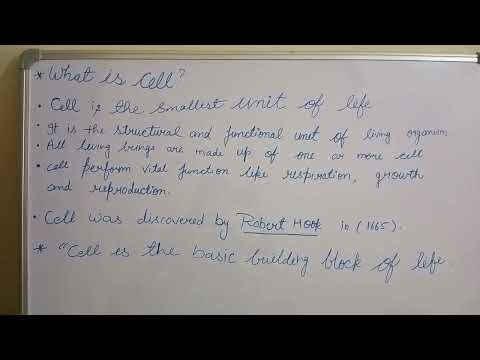 * What is cell?
• Cell is the smallest unit of life
• It is the structural and functional unit of living organism
• All living beings are made up of one or more cell
• cell perform vital function like respiration, growth
and reproduction.
• Cell was discovered by Robert Hook in (1665).
* "Cell is the basic building block of life